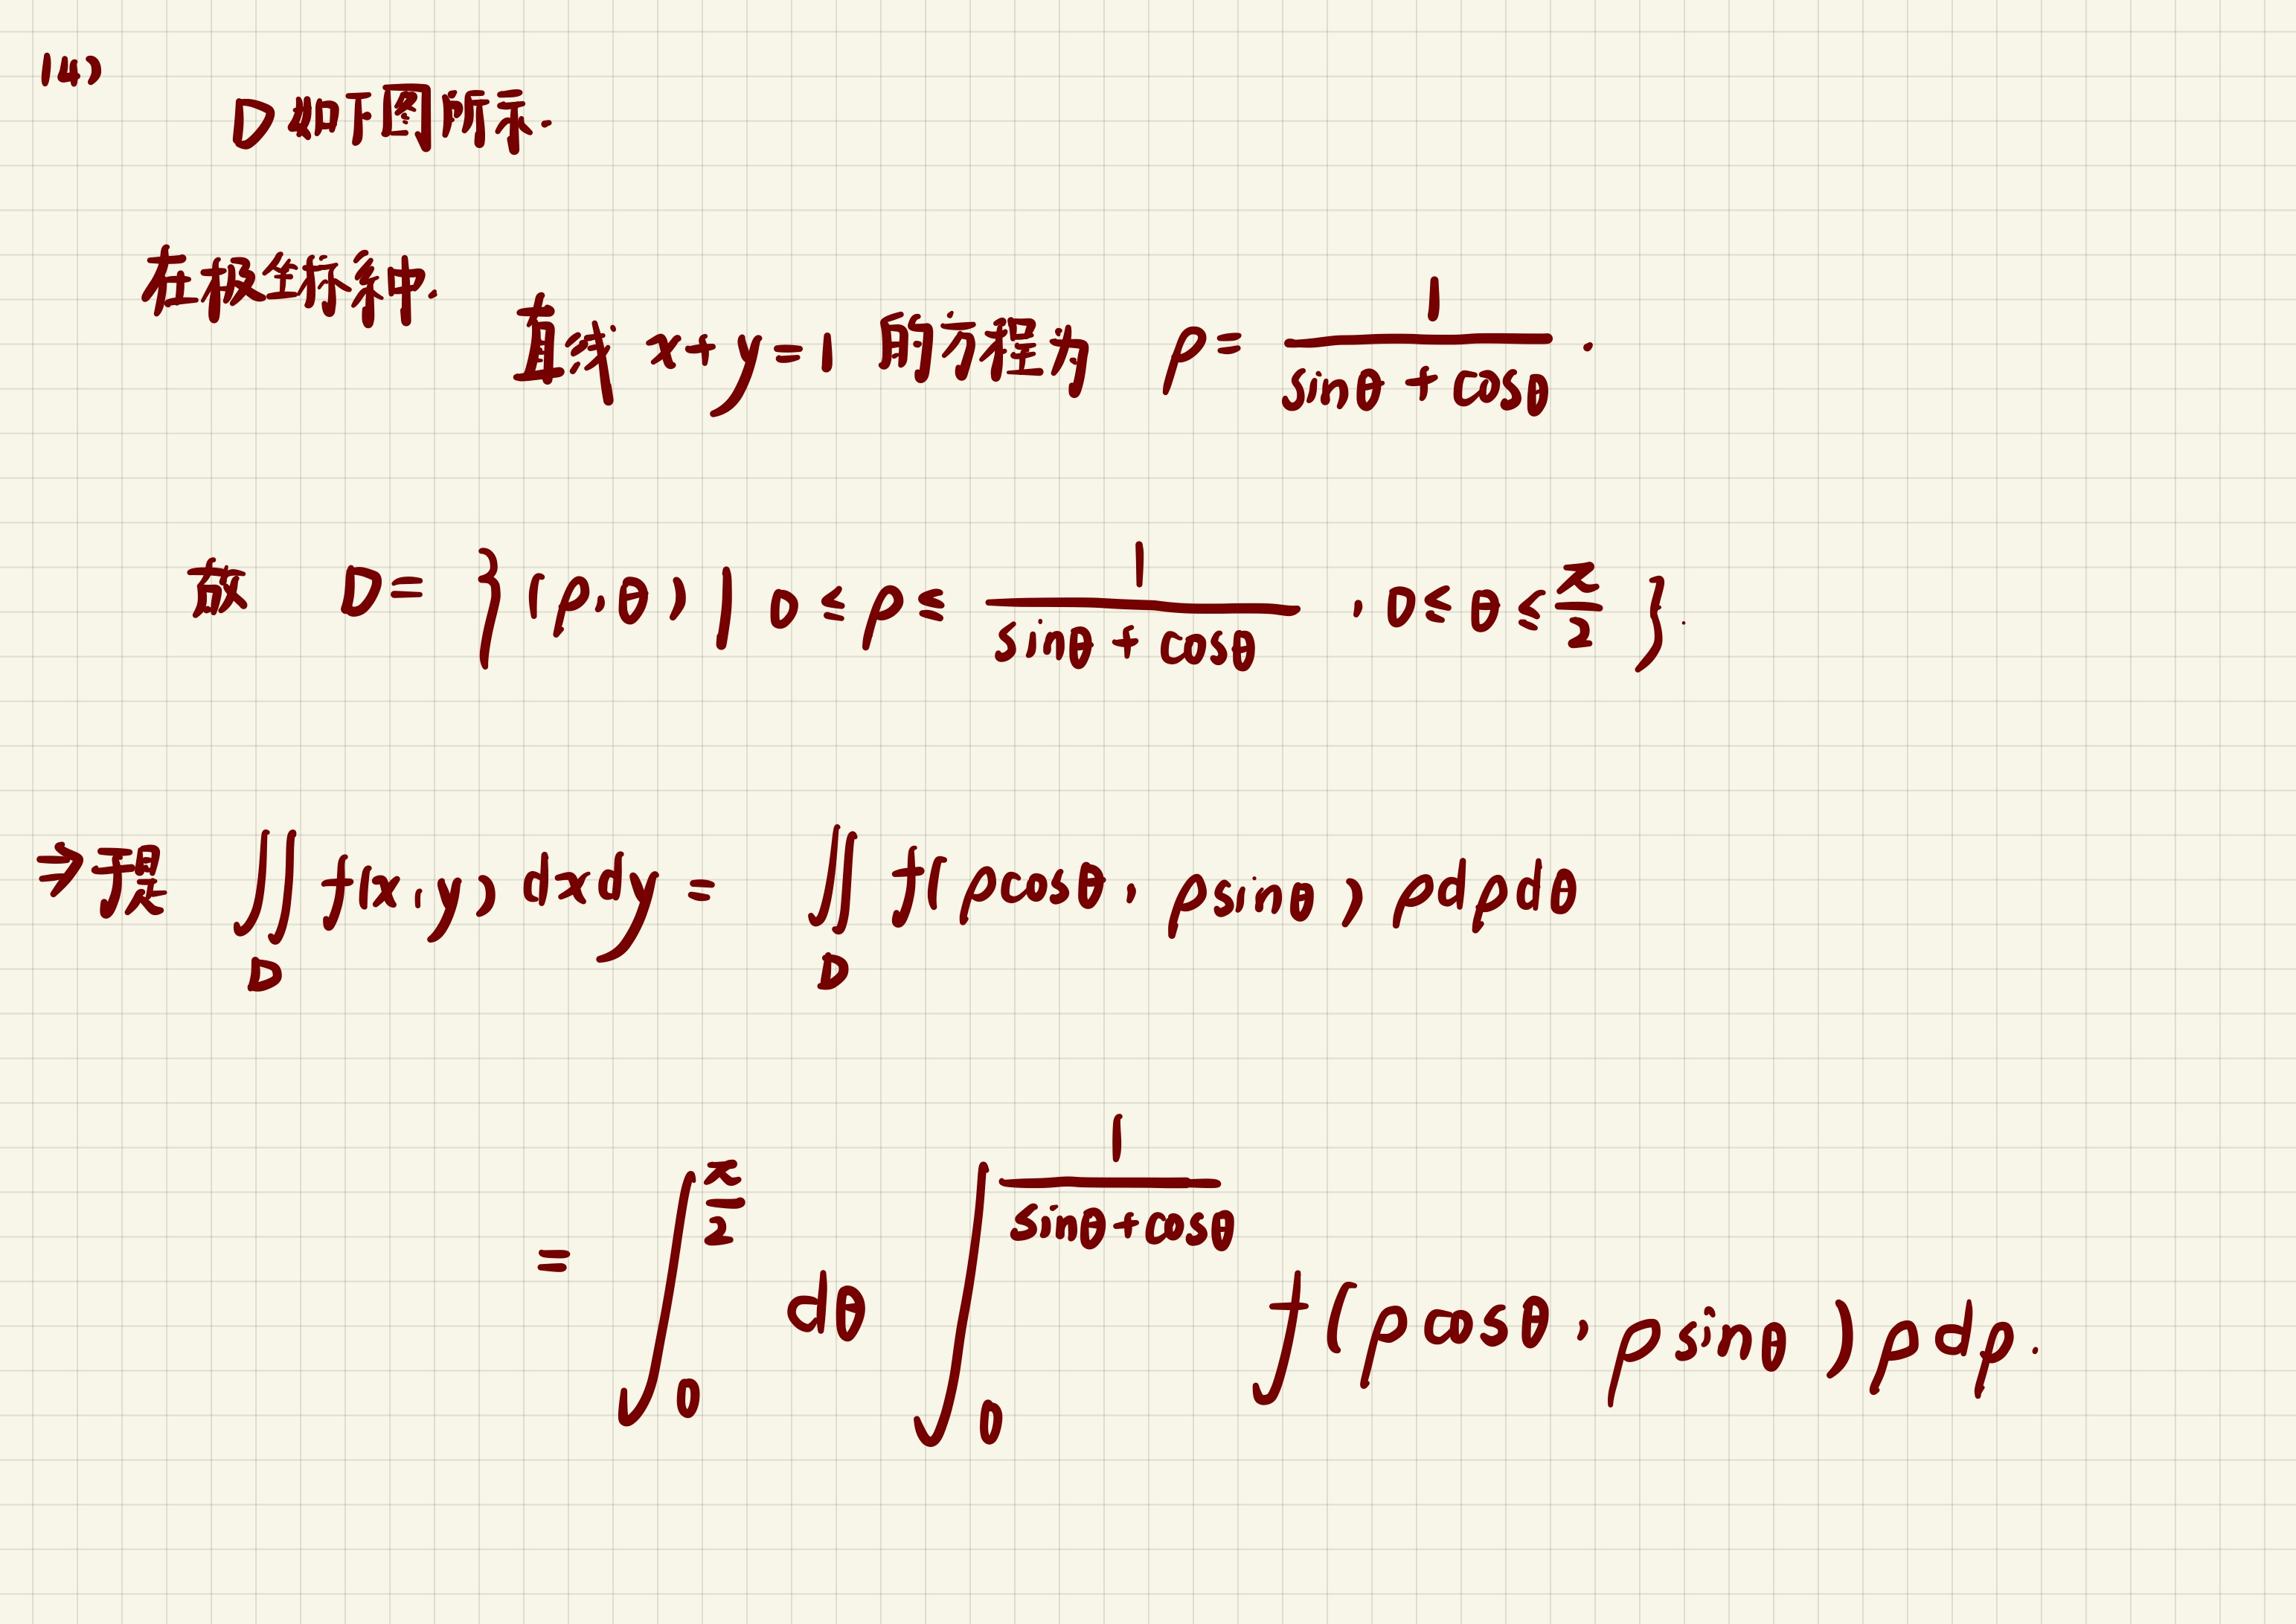 (4)
D如下图所示.
在极坐标系中.
直线 x+y=1 的方程为 ρ= 1/(sinθ+cosθ) .
故 D= { (ρ,θ) | 0≤ρ≤ 1/(sinθ+cosθ) , 0≤θ≤π/2 }.
⇒于是 ∬_D f(x,y) dxdy = ∬_D f(ρcosθ, ρsinθ) ρdρdθ
= ∫_0^{π/2} dθ ∫_0^{1/(sinθ+cosθ)} f(ρcosθ, ρsinθ) ρdρ.